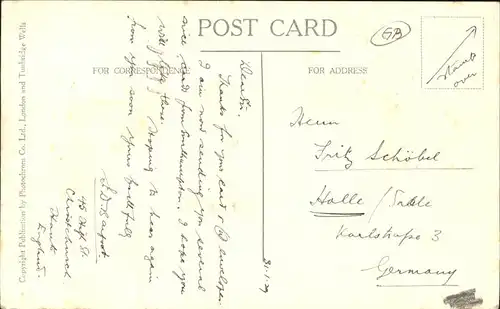 POST CARD
GB
stamp
over
FOR CORRESPONDENCE
FOR ADDRESS
Copyright Publication by Photochrom Co. Ltd., London and Tunbridge Wells
Dear Sir.
Thanks for your card & Envelopes
I am now sending you several
nice cards from Southampton. I hope you
will like these. Hoping to hear again
from you soon yours faithfully
43 High St.
Christchurch
Hants
England.
31-1-29
Herrn
Fritz Schöbel
Halle / Saale
Karlstraße 3
Germany